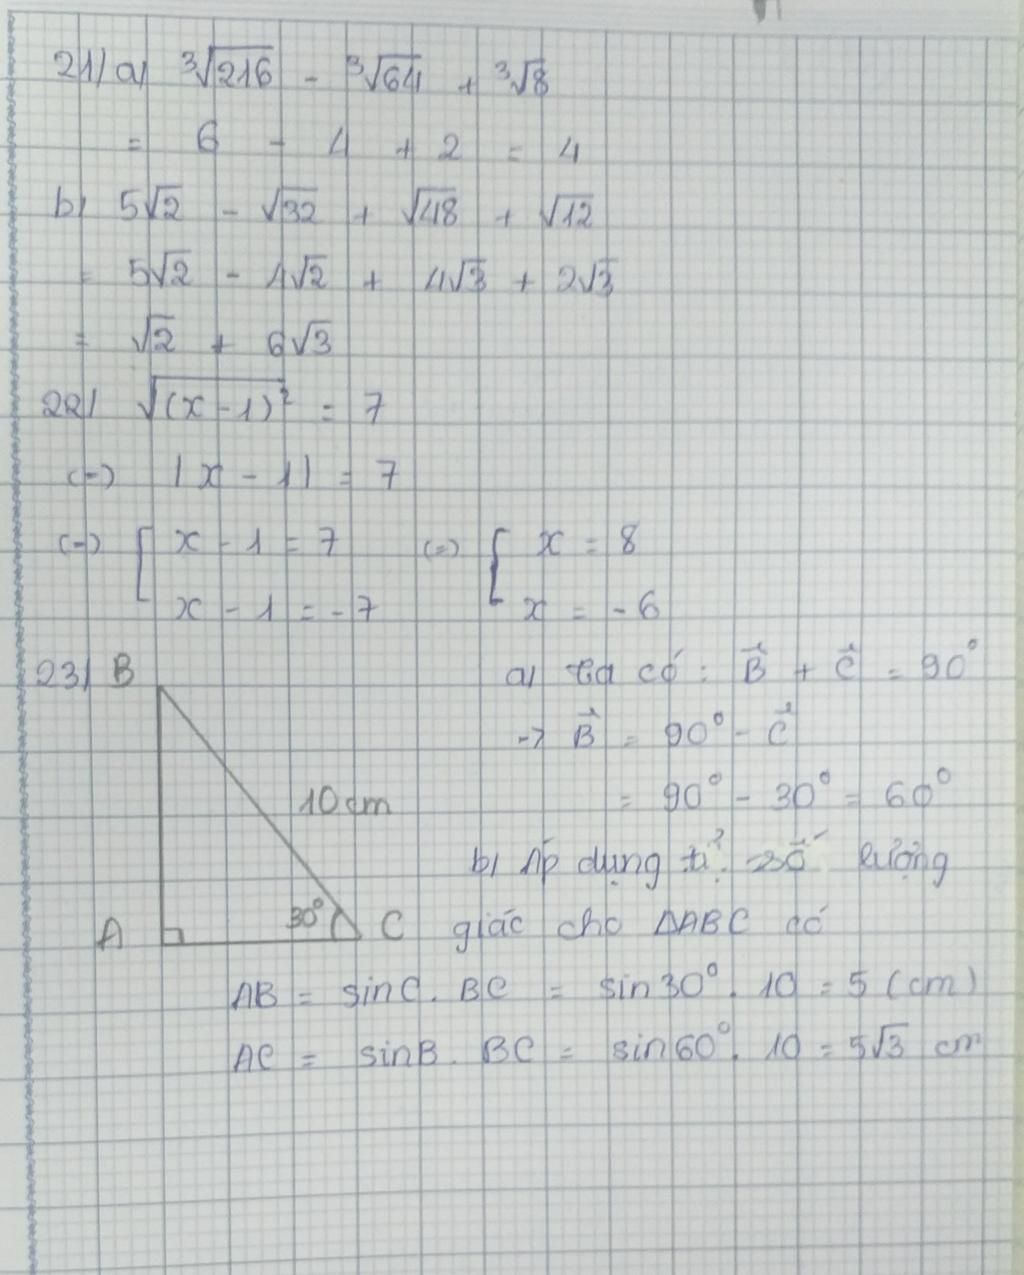 21/ a) ∛216 - ∛64 + ∛8
= 6 - 4 + 2 = 4
b) 5√2 - √32 + √48 + √12
= 5√2 - 4√2 + 4√3 + 2√3
= √2 + 6√3
22/ √(x-1)² = 7
(=) |x - 1| = 7
(=) [ x - 1 = 7 (=) [ x = 8
x - 1 = -7 x = -6
23/ B
10cm
30°
A C
a) ta có : B⃗ + C⃗ = 90°
-> B⃗ = 90° - C⃗
= 90° - 30° = 60°
b) Áp dụng tỉ số lượng
giác cho ΔABC có
AB = sinC . BC = sin30° . 10 = 5 (cm)
AC = sinB . BC = sin60° . 10 = 5√3 cm